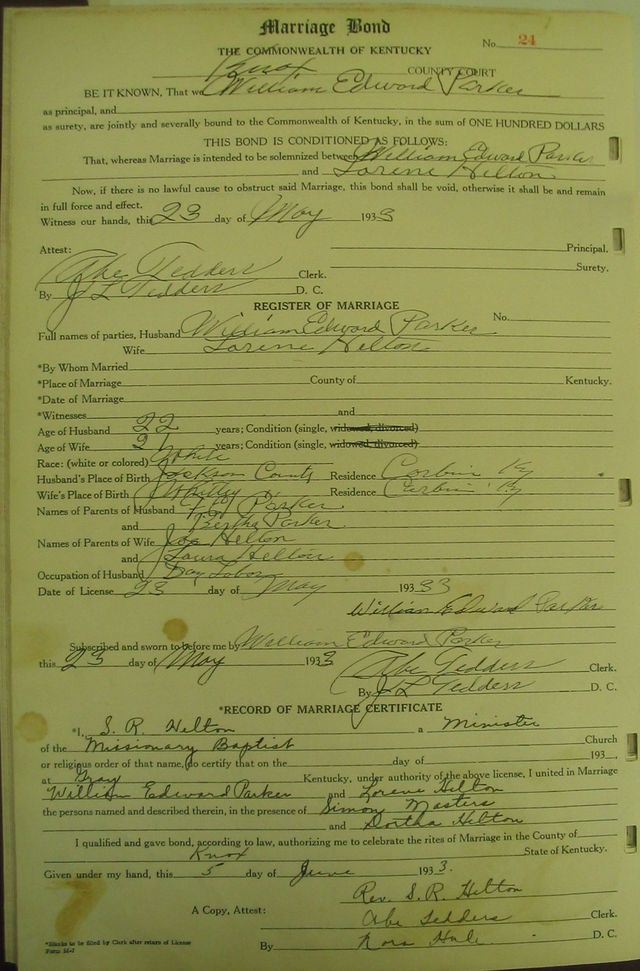 Marriage Bond
No. 24
THE COMMONWEALTH OF KENTUCKY
Knox COUNTY COURT
BE IT KNOWN, That we William Edward Parker
as principal, and
as surety, are jointly and severally bound to the Commonwealth of Kentucky, in the sum of ONE HUNDRED DOLLARS
THIS BOND IS CONDITIONED AS FOLLOWS:
That, whereas Marriage is intended to be solemnized between William Edward Parker
and Lorene Helton
Now, if there is no lawful cause to obstruct said Marriage, this bond shall be void, otherwise it shall be and remain
in full force and effect.
Witness our hands, this 23 day of May 1933
Principal.
Attest:
Surety.
Abe Tedders Clerk.
By J L Tedders D. C.
REGISTER OF MARRIAGE
No.
Full names of parties, Husband William Edward Parker
Wife Lorene Helton
*By Whom Married
*Place of Marriage County of Kentucky.
*Date of Marriage
*Witnesses and
Age of Husband 22 years; Condition (single, widowed, divorced)
Age of Wife 21 years; Condition (single, widowed, divorced)
Race: (white or colored) White
Husband's Place of Birth Jackson County Residence Corbin Ky
Wife's Place of Birth Whitley Residence Corbin Ky
Names of Parents of Husband Parker
and Bertha Parker
Names of Parents of Wife Joe Helton
and Laura Helton
Occupation of Husband Day Labor
Date of License 23 day of May 1933
William Edward Parker
Subscribed and sworn to before me by William Edward Parker
this 23 day of May 1933
Abe Tedders Clerk.
By J L Tedders D. C.
*RECORD OF MARRIAGE CERTIFICATE
*I, S. R. Helton a Minister
of the Missionary Baptist Church
or religious order of that name, do certify that on the day of 193
at Gray Kentucky, under authority of the above license, I united in Marriage
William Edward Parker and Lorene Helton
the persons named and described therein, in the presence of Simon Masters
and Dortha Helton
I qualified and gave bond, according to law, authorizing me to celebrate the rites of Marriage in the County of
Knox State of Kentucky.
Given under my hand, this 5 day of June 1933.
Rev. S. R. Helton
A Copy, Attest: Abe Tedders Clerk.
By Nora D. C.
*Blanks to be filled by Clerk after return of License